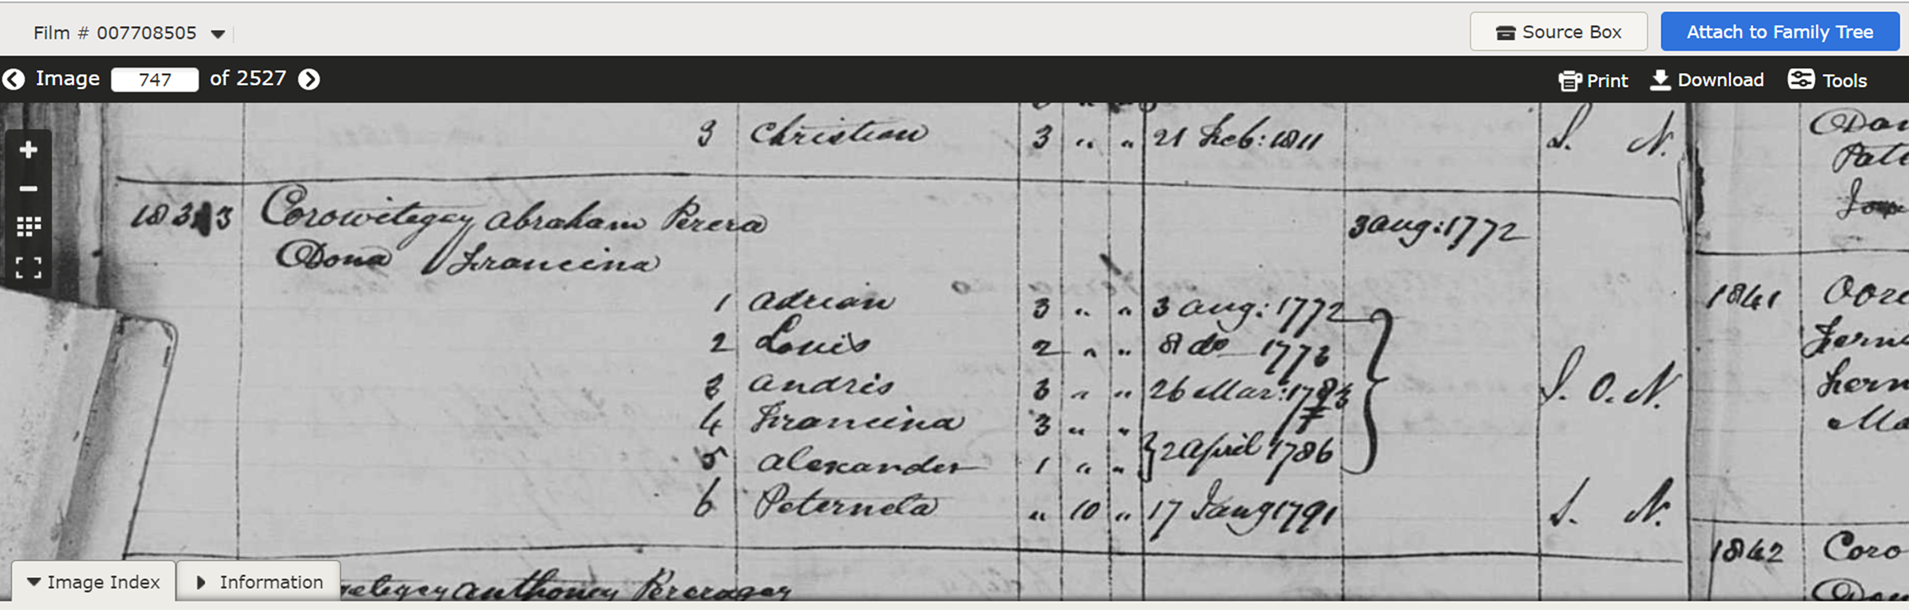 Film # 007708505
Source Box
Attach to Family Tree
Image 747 of 2527
Print
Download
Tools
3 Christian 3 " " 21 Feb: 1811 S. N.
Corowitegey Abraham Perera 3 aug: 1772
Dona Francina
1 Adrian 3 " " 3 aug: 1772
2 Louis 2 " " 8 do 1773
3 Andris 3 " " 26 Mar:
S. O. N.
4 Francina 3 " "
2 April 1786
5 Alexander 1 " "
6 Peternela " 10 " 17 1791 S. N.
1841
1842 Coro
Anthoney Pereragey
Image Index
Information